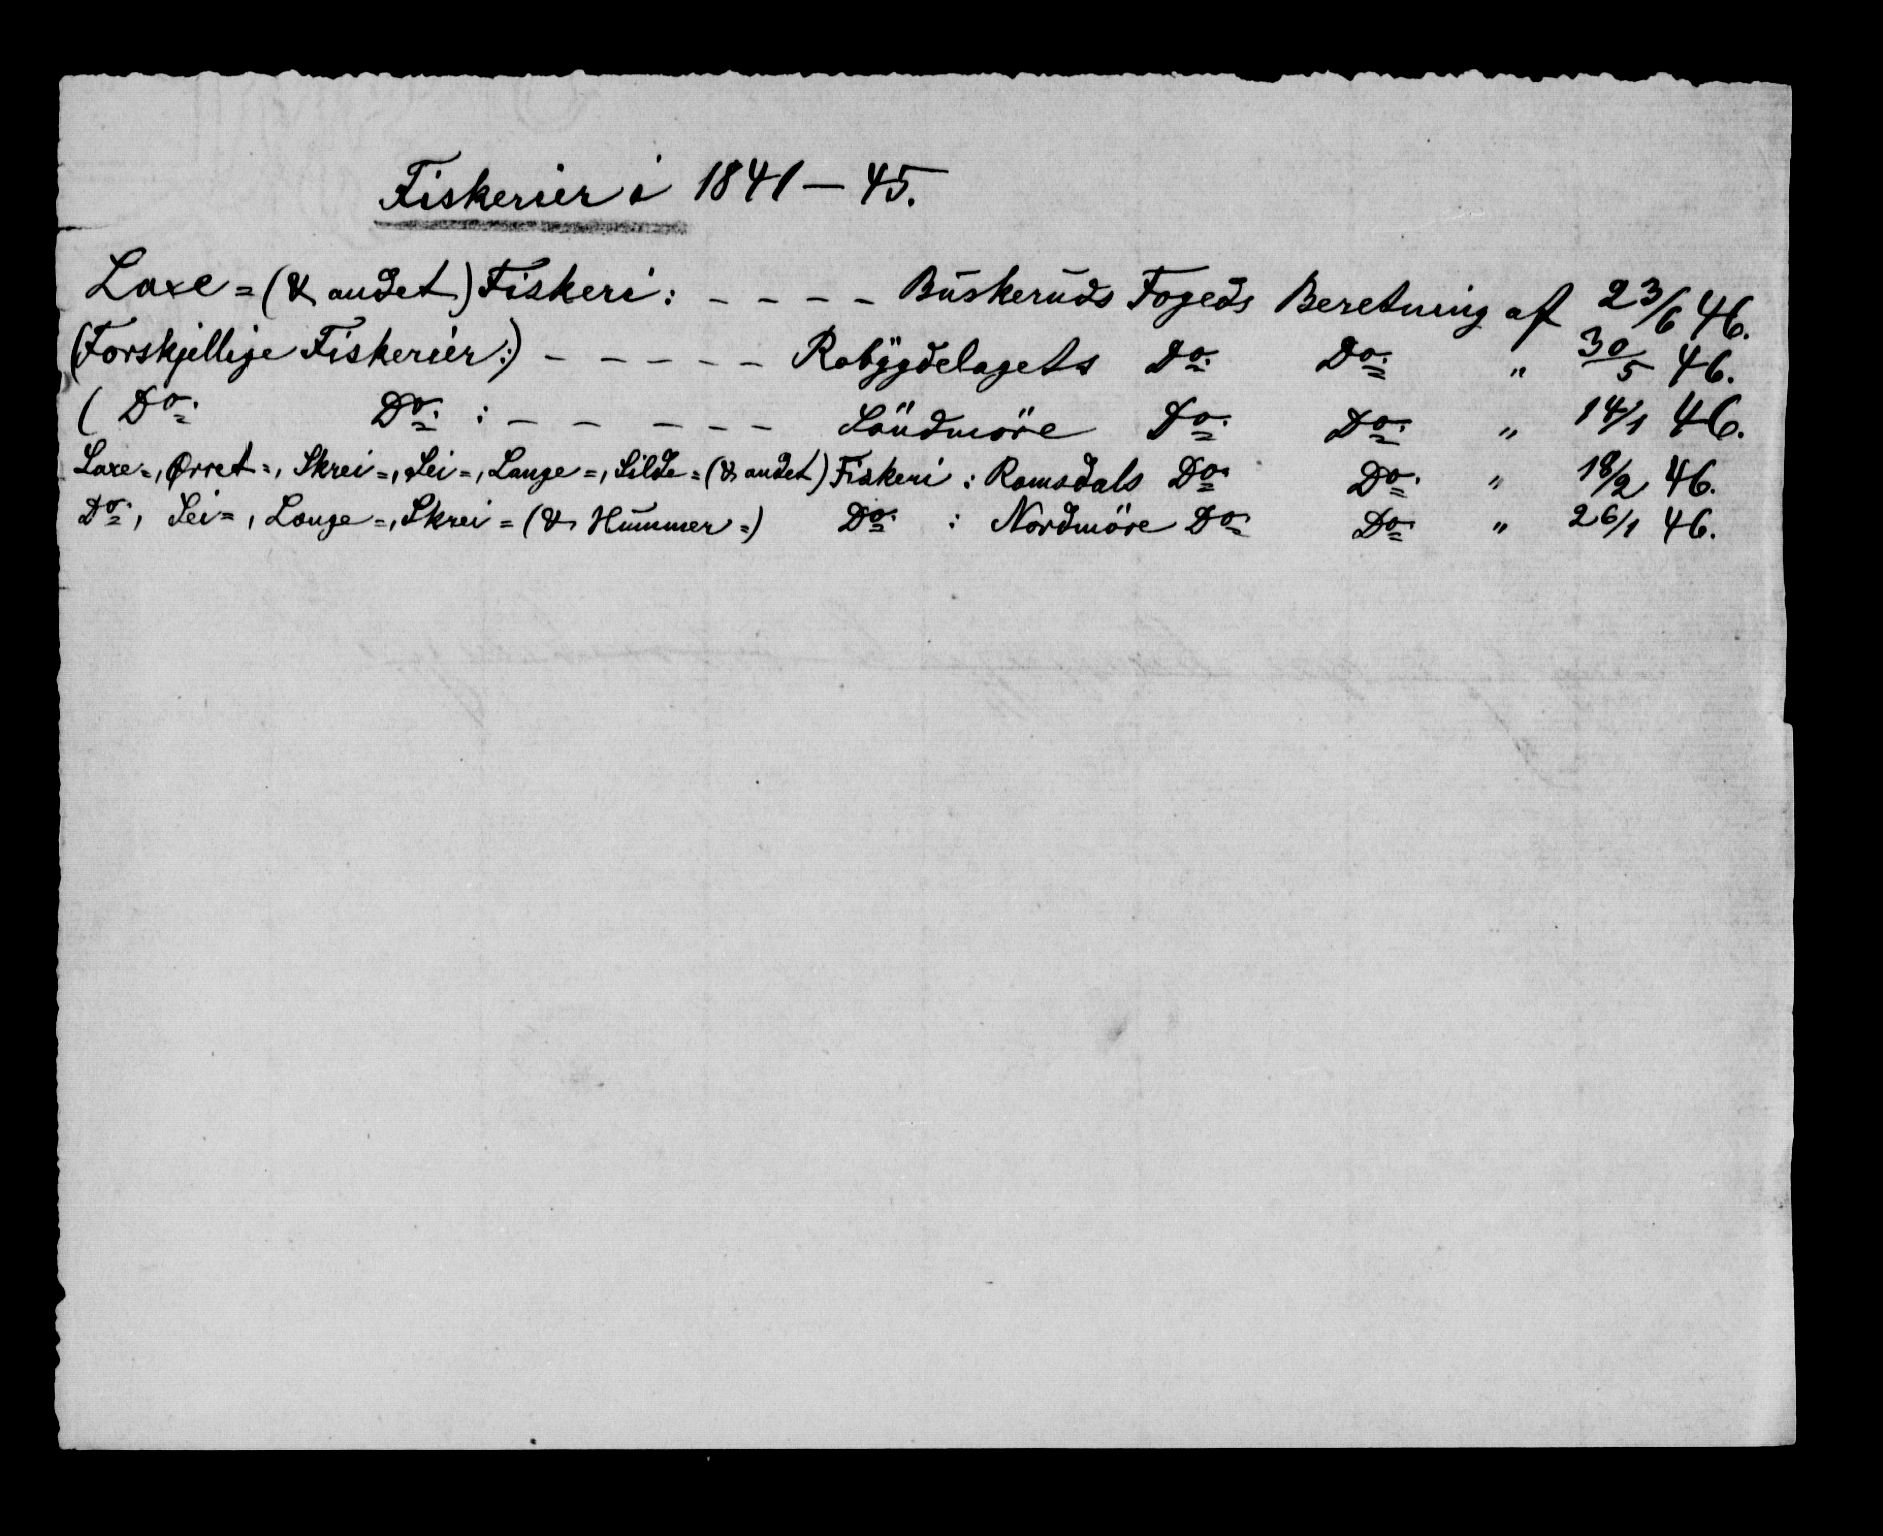 Fiskerier i 1841 — 45.
Laxe = (& andet) Fiskeri: - - - - Buskeruds Fogeds Beretning af 23/6 46.
(Forskjellige Fiskerier:) - - - - - Robÿgdelagets Do. Do. " 30/5 46.
( Do. Do. : - - - - - Söndmöre Do. Do. " 14/1 46.
Laxe =, Ørret =, Skrei =, Sei =, Lange =, Silde = (& andet) Fiskeri : Romsdals Do. Do. " 18/2 46.
Do., Sei =, Lange =, Skrei = (& Hummer =) Do. : Nordmöre Do. Do. " 26/1 46.